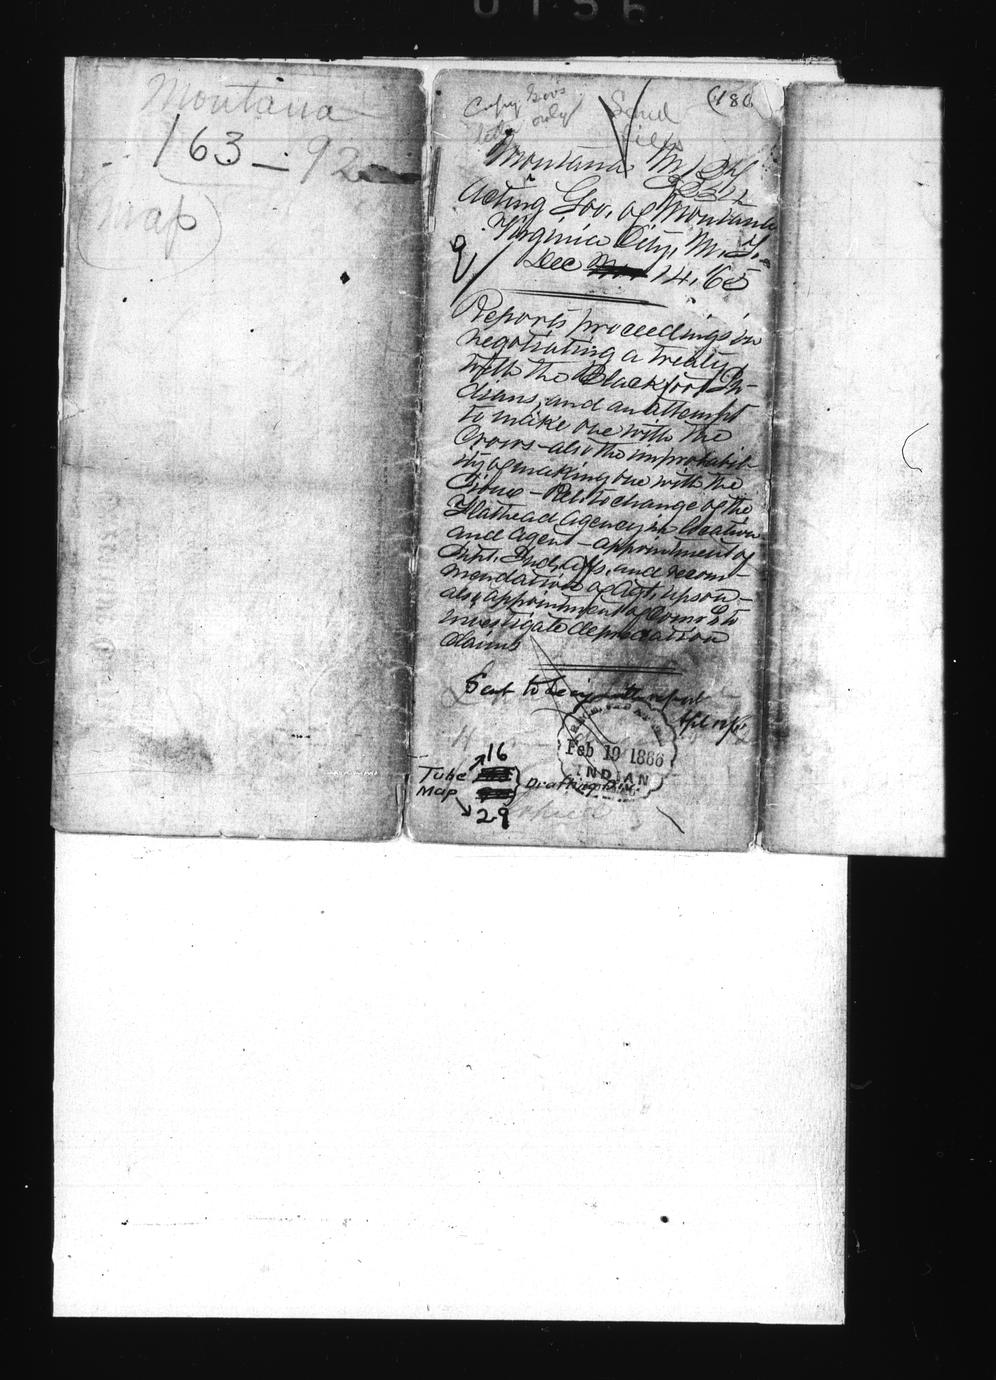 0156
Montana
163 - 92
(Map)
Copy Gov's
letter only
Send
files
(186
Montana M/24
Acting Gov. of Montana
Virginia City, M. T.
Dec 14, '65
Reports proceedings in
negotiating a treaty
with the Blackfoot In-
dians, and an attempt
to make one with the
Crows - also the improbabil-
ity of making one with the
Sioux - Rel. to change of the
Flathead Agency in location
and Agent - appointment of
Supt. Ind. Affs. and recom-
mendation of Agt. Upson -
also appointment of Com's to
investigate depredation
claims
Sent to Secy with report
Feb 19 1866
INDIAN
16
Tube
Map
Drafting Div.
29